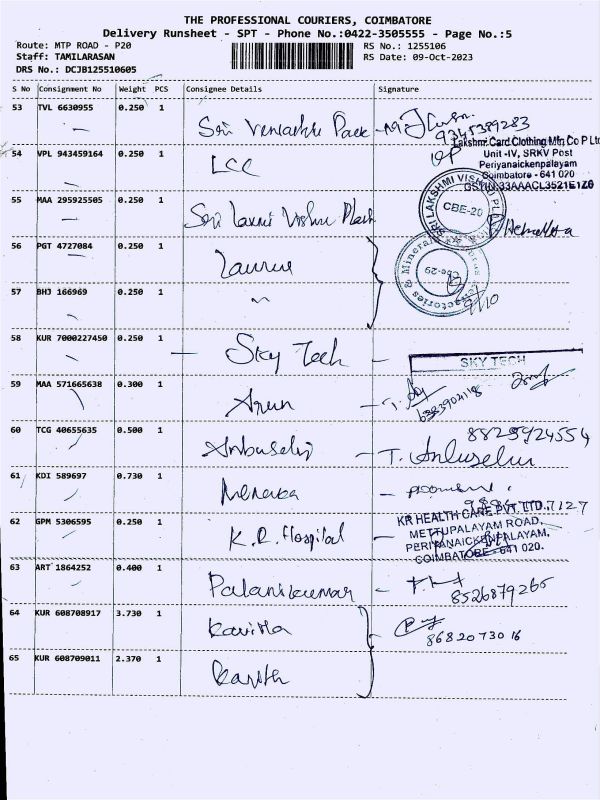 THE PROFESSIONAL COURIERS, COIMBATORE
Delivery Runsheet - SPT - Phone No.:0422-3505555 - Page No.:5
Route: MTP ROAD - P20 RS No.: 1255106
Staff: TAMILARASAN RS Date: 09-Oct-2023
DRS No.: DCJB125510605
S No Consignment No Weight PCS Consignee Details Signature
53 TVL 6630955 0.250 1
Sri Pack 9345389283
Lakshmi Card Clothing Mfg Co P Ltd
54 VPL 943459164 0.250 1 LCC Unit -IV, SRKV Post
Periyanaickenpalayam
Coimbatore - 641 020
GSTIN:33AAACL3521E1Z0
55 MAA 295925505 0.250 1 Sri Laxmi Vishnu SRI LAKSHMI VISHNU CBE-20
56 PGT 4727084 0.250 1 Laurus
Cbe-29
57 BHJ 166969 0.250 1 9/10
58 KUR 7000227450 0.250 1 Sky Tech SKY TECH
59 MAA 571665638 0.300 1 Arun
60 TCG 40655635 0.500 1 Anbuselvi T. Anbuselvi
61 KDI 589697 0.730 1 Menaka
62 GPM 5306595 0.250 1 K.R. Hospital KR HEALTH CARE PVT. LTD.,
METTUPALAYAM ROAD,
PERIYANAICKENPALAYAM,
COIMBATORE - 641 020.
63 ART 1864252 0.400 1 Palanikumar 8526879265
64 KUR 608708917 3.730 1 Kavitha 8682073016
65 KUR 608709011 2.370 1 Kavitha